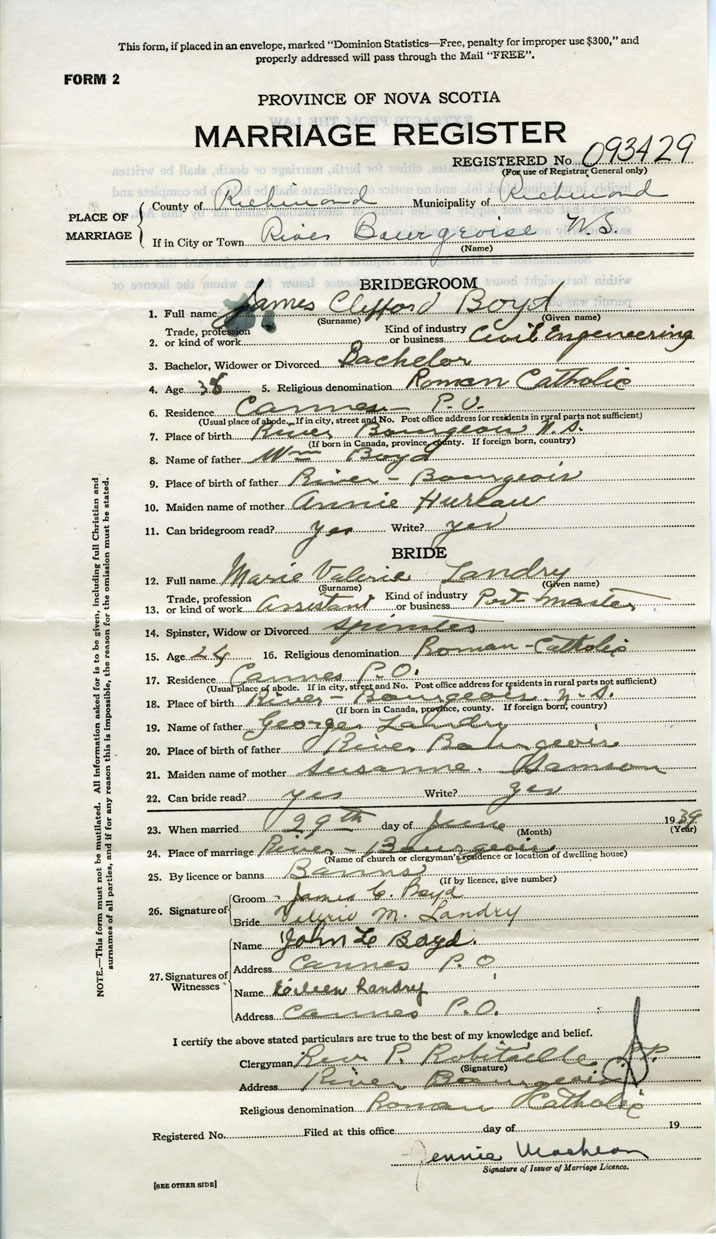 This form, if placed in an envelope, marked "Dominion Statistics—Free, penalty for improper use $300," and
properly addressed will pass through the Mail "FREE".
FORM 2
PROVINCE OF NOVA SCOTIA
MARRIAGE REGISTER
REGISTERED No. 093429
(For use of Registrar General only)
PLACE OF MARRIAGE
County of Richmond Municipality of Richmond
If in City or Town River Bourgeoise N.S.
(Name)
BRIDEGROOM
1. Full name James Clifford Boyd
(Surname) (Given name)
2. Trade, profession or kind of work Kind of industry or business Civil Engeneering
3. Bachelor, Widower or Divorced Bachelor
4. Age 38 5. Religious denomination Roman Catholic
6. Residence Cannes P.O.
(Usual place of abode. If in city, street and No. Post office address for residents in rural parts not sufficient)
7. Place of birth River Bourgeois N.S.
(If born in Canada, province, county. If foreign born, country)
8. Name of father Wm Boyd
9. Place of birth of father River-Bourgeois
10. Maiden name of mother Annie Hurlau
11. Can bridegroom read? yes Write? yes
BRIDE
12. Full name Marie Valerie Landry
(Surname) (Given name)
13. Trade, profession or kind of work Assistant Kind of industry or business Post-master
14. Spinster, Widow or Divorced Spinster
15. Age 24 16. Religious denomination Roman-Catholic
17. Residence Cannes P.O.
(Usual place of abode. If in city, street and No. Post office address for residents in rural parts not sufficient)
18. Place of birth River-Bourgeois N.S.
(If born in Canada, province, county. If foreign born, country)
19. Name of father George Landry
20. Place of birth of father River Bourgeois
21. Maiden name of mother Susanne Samson
22. Can bride read? yes Write? yes
23. When married 29th day of June 1939
(Month) (Year)
24. Place of marriage River-Bourgeois
(Name of church or clergyman's residence or location of dwelling house)
25. By licence or banns Banns
(If by licence, give number)
26. Signature of
Groom James C. Boyd
Bride Valerie M. Landry
27. Signatures of Witnesses
Name John L Boyd.
Address Cannes P.O.
Name Eileen Landry
Address Cannes P.O.
I certify the above stated particulars are true to the best of my knowledge and belief.
Clergyman Rev P. Robitaille P.P.
(Signature)
Address River Bourgeois
Religious denomination Roman Catholic
Registered No. Filed at this office day of 19
Jennie
Signature of Issuer of Marriage Licence.
[SEE OTHER SIDE]
NOTE.—This form must not be mutilated. All information asked for is to be given, including full Christian and
surnames of all parties, and if for any reason this is impossible, the reason for the omission must be stated.